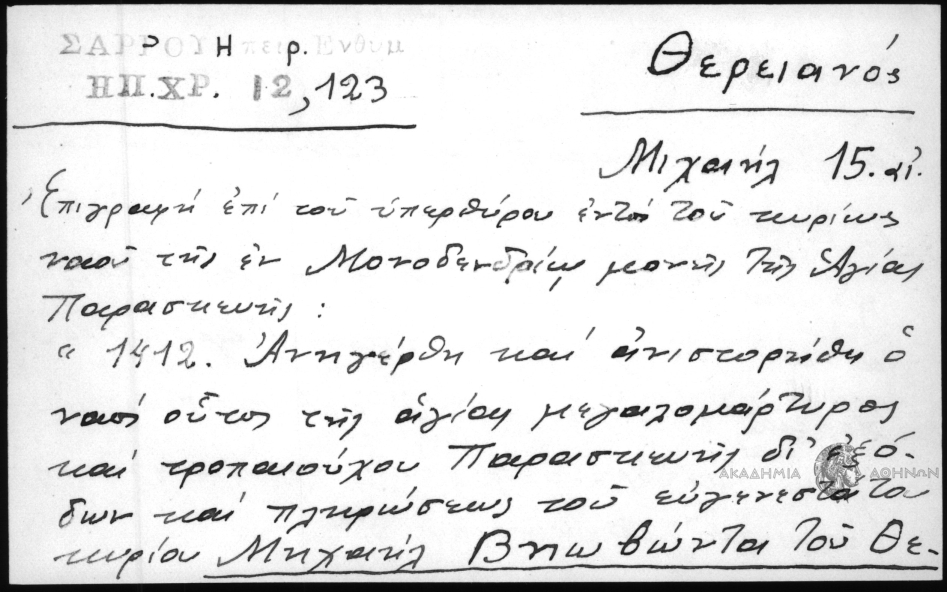 ΣΑΡΡΟΥ Ηπειρ. Ενθυμ
ΗΠ.ΧΡ. 12, 123
Θερειανός
Μιχαήλ 15. αἰ.
Ἐπιγραφή ἐπί τοῦ ὑπερθύρου ἐντός τοῦ κυρίως
ναοῦ τῆς ἐν Μονοδενδρίῳ μονῆς τῆς Ἁγίας
Παρασκευῆς :
" 1412. Ἀνηγέρθη καί ἀνιστορήθη ὁ
ναός οὗτος τῆς ἁγίας μεγαλομάρτυρος
καί τροπαιούχου Παρασκευῆς δι' ἐξό-
δων καί πληρώσεως τοῦ εὐγενεστάτου
κυρίου Μηχαήλ Βηωβώντα τοῦ Θε-
ΑΚΑΔΗΜΙΑ ΑΘΗΝΩΝ